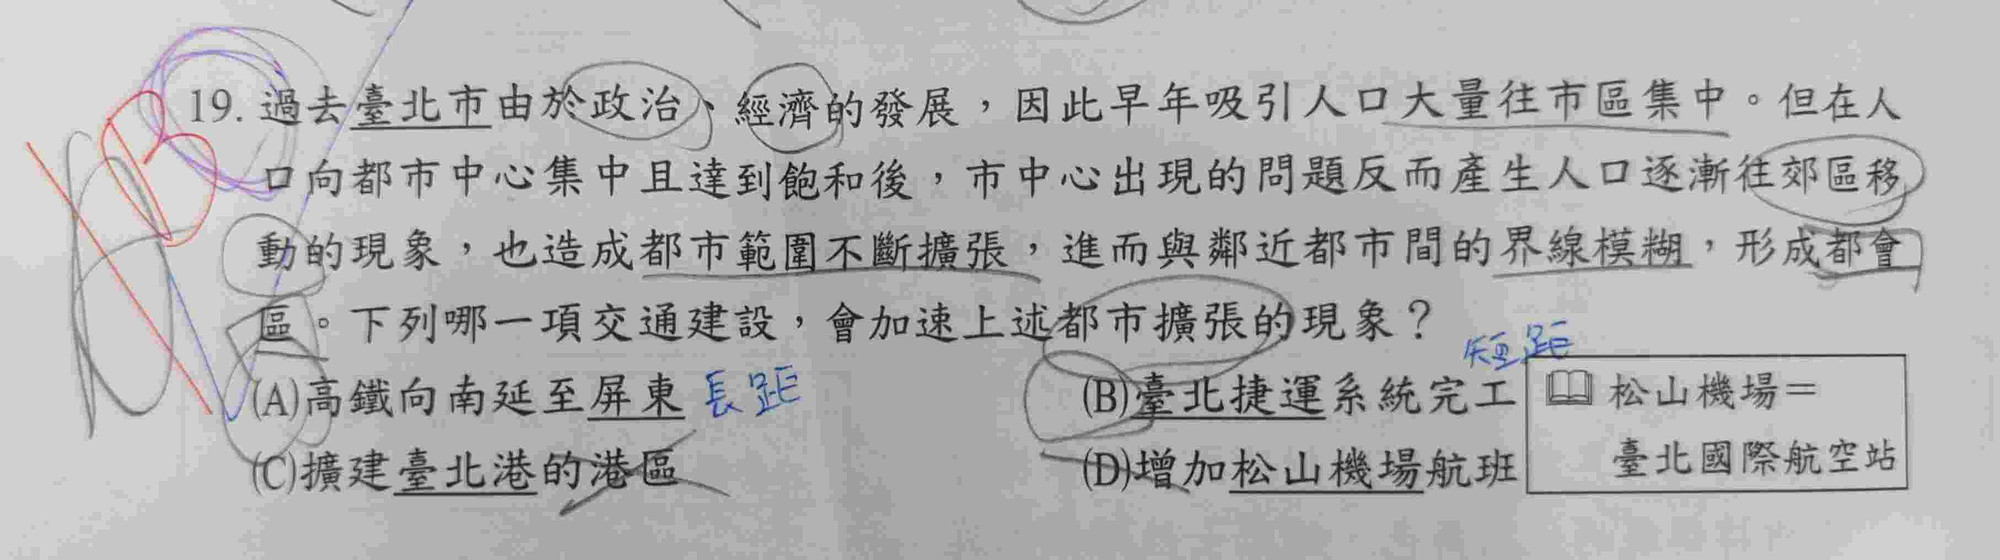 19. 過去臺北市由於政治、經濟的發展，因此早年吸引人口大量往市區集中。但在人
口向都市中心集中且達到飽和後，市中心出現的問題反而產生人口逐漸往郊區移
動的現象，也造成都市範圍不斷擴張，進而與鄰近都市間的界線模糊，形成都會
區。下列哪一項交通建設，會加速上述都市擴張的現象？
(A)高鐵向南延至屏東 長距
短距
(B)臺北捷運系統完工
(C)擴建臺北港的港區
(D)增加松山機場航班
松山機場＝
臺北國際航空站
B